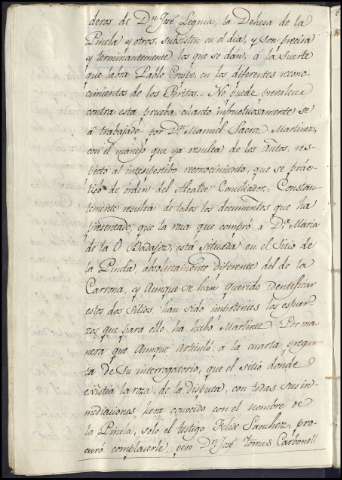 deros de Dn. José Leguia, la Dehesa de la
Pinela y otros, subsisten en el dia, y son precisa
y terminantemente los que se dan, á la Suerte
que labra Pablo Ponze, en los diferentes recono-
cimientos de los Peritos. No puede prevalecer
contra esta prueba cuanto infructuosamente se
á trabajado por Dn. Manuel Saenz Martinez,
con el manejo que ya resulta de los autos, res-
pecto al intespestibo reconocimiento, que se prác-
ticó de orden del Alcalde Conciliador. Constan-
temente resulta de todos los documentos que ha
presentado, que la raza que compró á Da. Maria
de la O Badajoz, está situada en el Sitio de
la Pinela absolutamente diferente del de la
Carrona, y Aunque se han querido identificar
estos dos sitios han sido impotentes los esfuer-
zos que para ello ha hecho Martinez. De ma-
nera que Aunque Articuló á la cuarta pregun-
ta de Su interrogatorio, que el sitio donde
existia la raza de la disputa, con todas sus in-
mediaciones, hera conocido con el nombre de
la Pinela, solo el testigo Felix Sanchez, pro-
curó complacerle, pero Dn. José Torres Carbonell